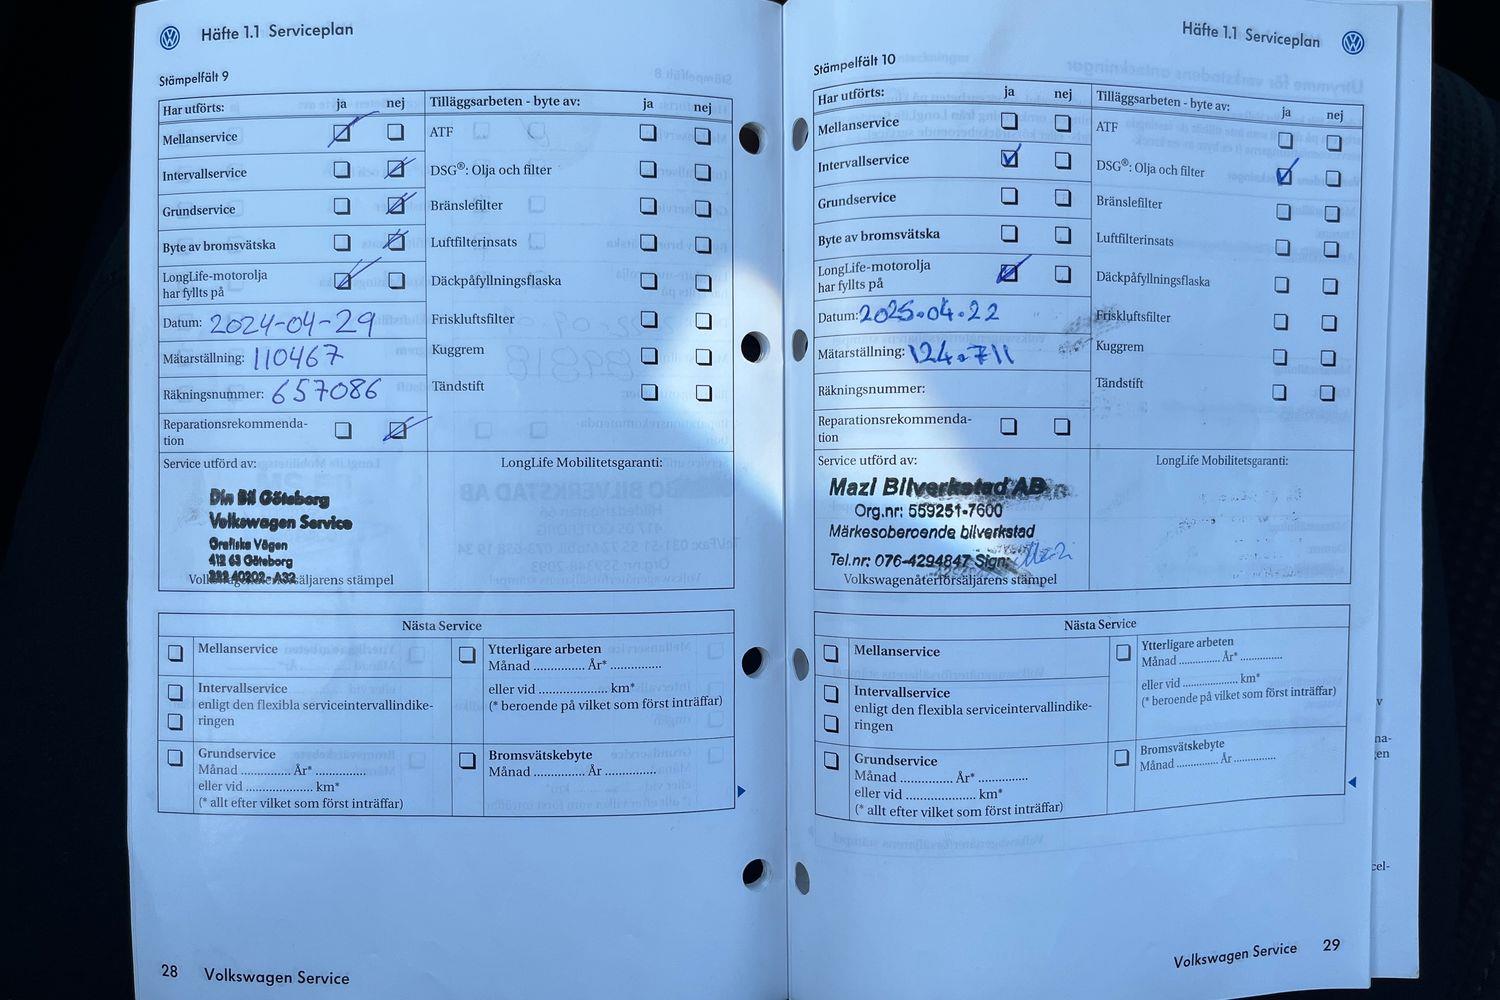 Häfte 1.1 Serviceplan
Stämpelfält 9
Har utförts: ja nej
Mellanservice
Intervallservice
Grundservice
Byte av bromsvätska
LongLife-motorolja
har fyllts på
Datum: 2024-04-29
Mätarställning: 110467
Räkningsnummer: 657086
Reparationsrekommenda-
tion
Tilläggsarbeten - byte av: ja nej
ATF
DSG®: Olja och filter
Bränslefilter
Luftfilterinsats
Däckpåfyllningsflaska
Friskluftsfilter
Kuggrem
Tändstift
Service utförd av:
Din Bil Göteborg
Volkswagen Service
Grafiska Vägen
412 63 Göteborg
Volkswagenåterförsäljarens stämpel
LongLife Mobilitetsgaranti:
Nästa Service
Mellanservice
Intervallservice
enligt den flexibla serviceintervallindike-
ringen
Grundservice
Månad .............. År* ...............
eller vid .................... km*
(* allt efter vilket som först inträffar)
Ytterligare arbeten
Månad .............. År* ...............
eller vid .................... km*
(* beroende på vilket som först inträffar)
Bromsvätskebyte
Månad .............. År ...............
28 Volkswagen Service
Häfte 1.1 Serviceplan
Stämpelfält 10
Har utförts: ja nej
Mellanservice
Intervallservice
Grundservice
Byte av bromsvätska
LongLife-motorolja
har fyllts på
Datum: 2025.04.22
Mätarställning: 124.711
Räkningsnummer:
Reparationsrekommenda-
tion
Tilläggsarbeten - byte av: ja nej
ATF
DSG®: Olja och filter
Bränslefilter
Luftfilterinsats
Däckpåfyllningsflaska
Friskluftsfilter
Kuggrem
Tändstift
Service utförd av:
Mazi Bilverkstad AB
Org.nr: 559251-7600
Märkesoberoende bilverkstad
Tel.nr: 076-4294847 Sign:
Volkswagenåterförsäljarens stämpel
LongLife Mobilitetsgaranti:
Nästa Service
Mellanservice
Intervallservice
enligt den flexibla serviceintervallindike-
ringen
Grundservice
Månad .............. År* ...............
eller vid .................... km*
(* allt efter vilket som först inträffar)
Ytterligare arbeten
Månad ............ År* ............
eller vid .................... km*
(* beroende på vilket som först inträffar)
Bromsvätskebyte
Månad ............ År ............
Volkswagen Service 29